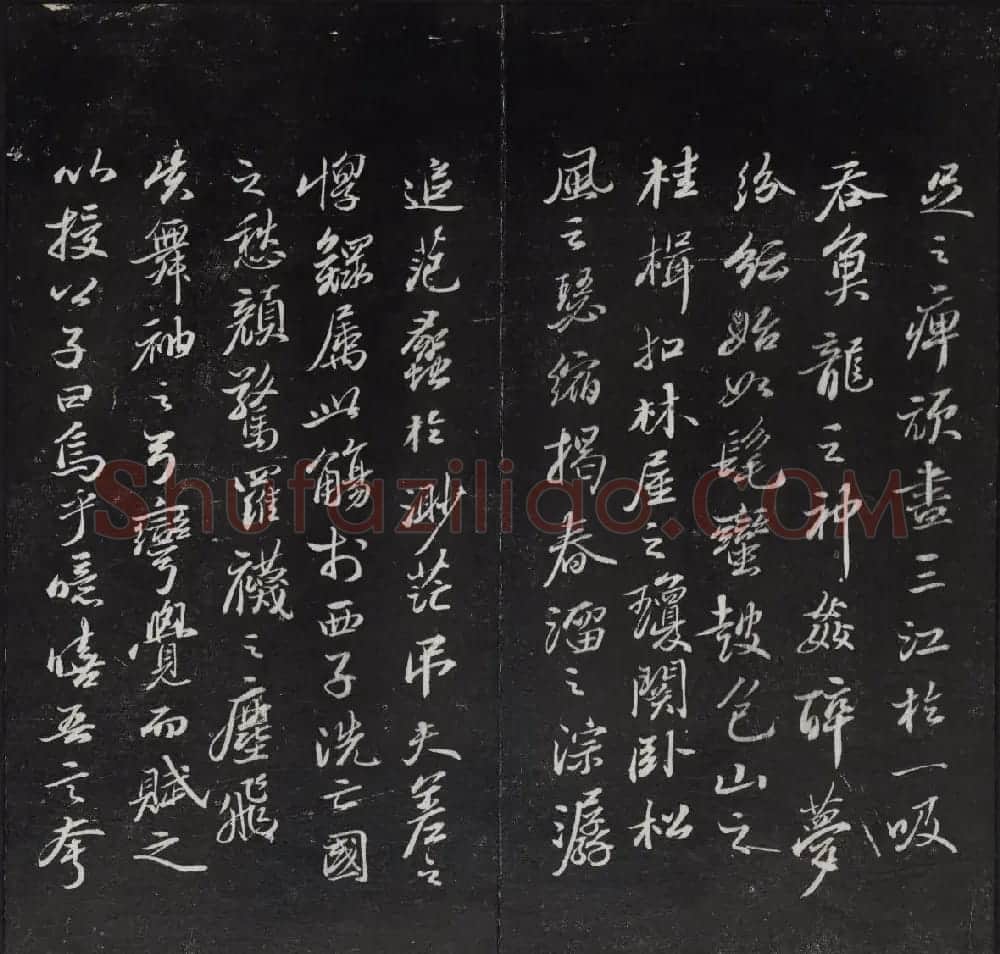 足之痺頑盡三江於一吸
吞魚龍之神姦醉夢
紛紜始如髦蠻鼓包山之
桂楫扣林屋之瓊關卧松
風之瑟縮揭春溜之淙潺
追范蠡於渺茫吊夫差之
惸鰥属此觴於西子洗亡國
之愁顔驚羅襪之塵飛
失舞袖之弓彎覺而賦之
以授公子曰烏乎噫嘻吾言夸
Shufaziliao.COM